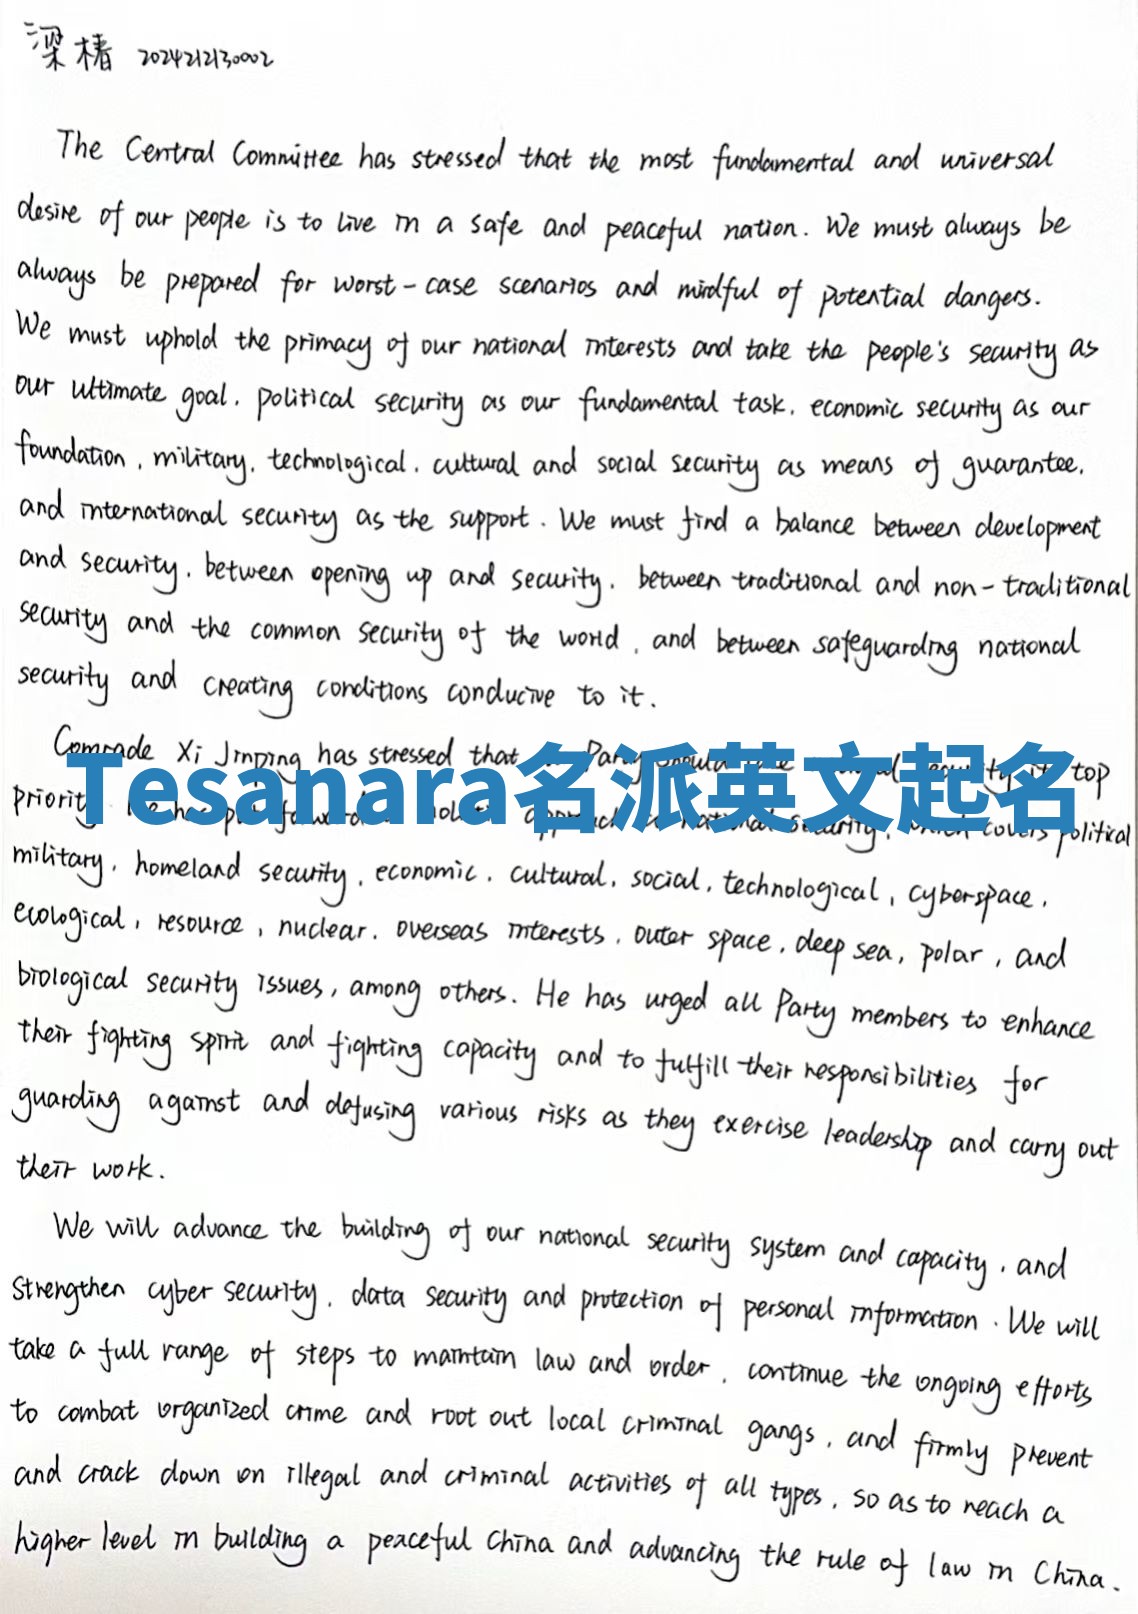 梁椿 2024212130002
The Central Committee has stressed that the most fundamental and universal
desire of our people is to live in a safe and peaceful nation. We must always be
always be prepared for worst-case scenarios and mindful of potential dangers.
We must uphold the primacy of our national interests and take the people's security as
our ultimate goal, political security as our fundamental task, economic security as our
foundation, military, technological, cultural and social security as means of guarantee,
and international security as the support. We must find a balance between development
and security, between opening up and security, between traditional and non-traditional
security and the common security of the world, and between safeguarding national
security and creating conditions conducive to it.
Comrade Xi Jinping has stressed that Party should security its top
Tesanara名派英文起名
priority. He has put forward a holistic approach to national security, which covers political
military, homeland security, economic, cultural, social, technological, cyberspace,
ecological, resource, nuclear, overseas interests, outer space, deep sea, polar, and
biological security issues, among others. He has urged all Party members to enhance
their fighting spirit and fighting capacity and to fulfill their responsibilities for
guarding against and defusing various risks as they exercise leadership and carry out
their work.
We will advance the building of our national security system and capacity, and
strengthen cyber security, data security and protection of personal information. We will
take a full range of steps to maintain law and order, continue the ongoing efforts
to combat organized crime and root out local criminal gangs, and firmly prevent
and crack down on illegal and criminal activities of all types, so as to reach a
higher level in building a peaceful China and advancing the rule of law in China.